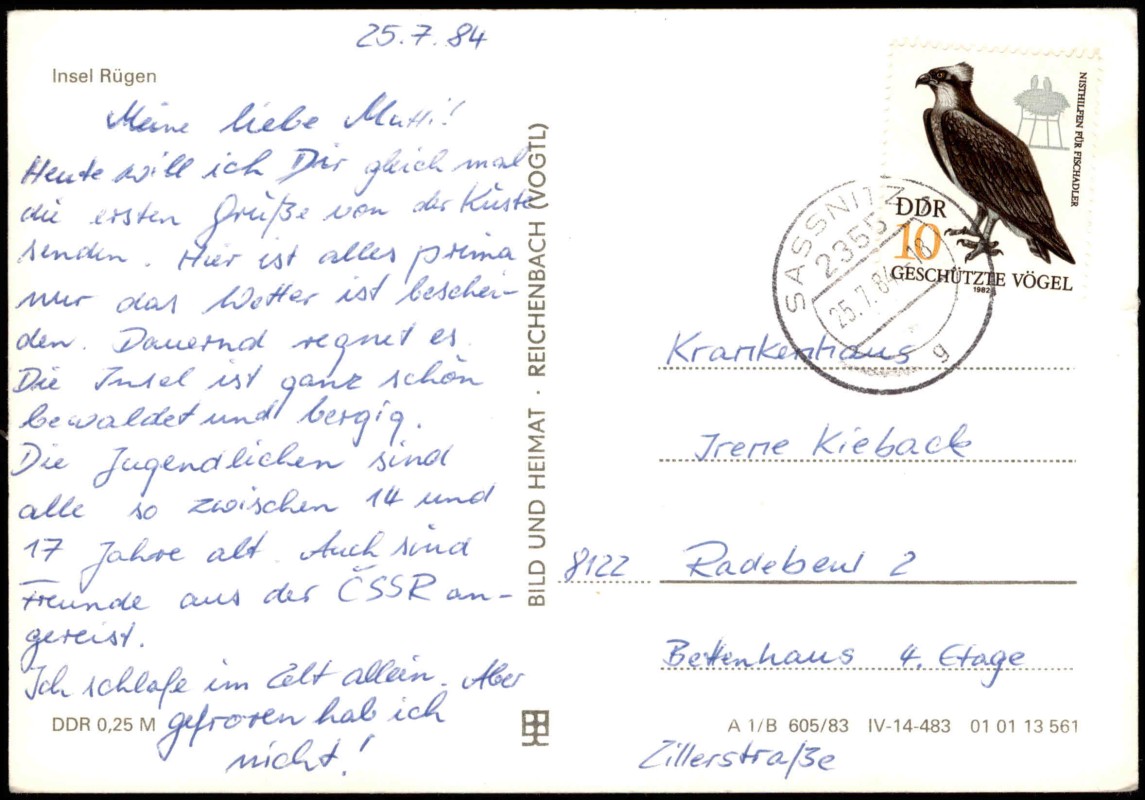 25.7.84
Insel Rügen
Meine liebe Mutti!
Heute will ich Dir gleich mal
die ersten Grüße von der Küste
senden. Hier ist alles prima
nur das Wetter ist beschei-
den. Dauernd regnet es.
Die Insel ist ganz schön
bewaldet und bergig.
Die Jugendlichen sind
alle so zwischen 14 und
17 Jahre alt. Auch sind
Freunde aus der ČSSR an-
gereist.
Ich schlafe im Zelt allein. Aber
gefroren hab ich
nicht!
DDR 0,25 M
BILD UND HEIMAT · REICHENBACH (VOGTL)
NISTHILFEN FÜR FISCHADLER
DDR
10
GESCHÜTZTE VÖGEL
1982
SASSNITZ
2355
25.7.84-18
g
Krankenhaus
Irene Kieback
8122 Radebeul 2
Bettenhaus 4. Etage
A 1/B 605/83 IV-14-483 01 01 13 561
Zillerstraße